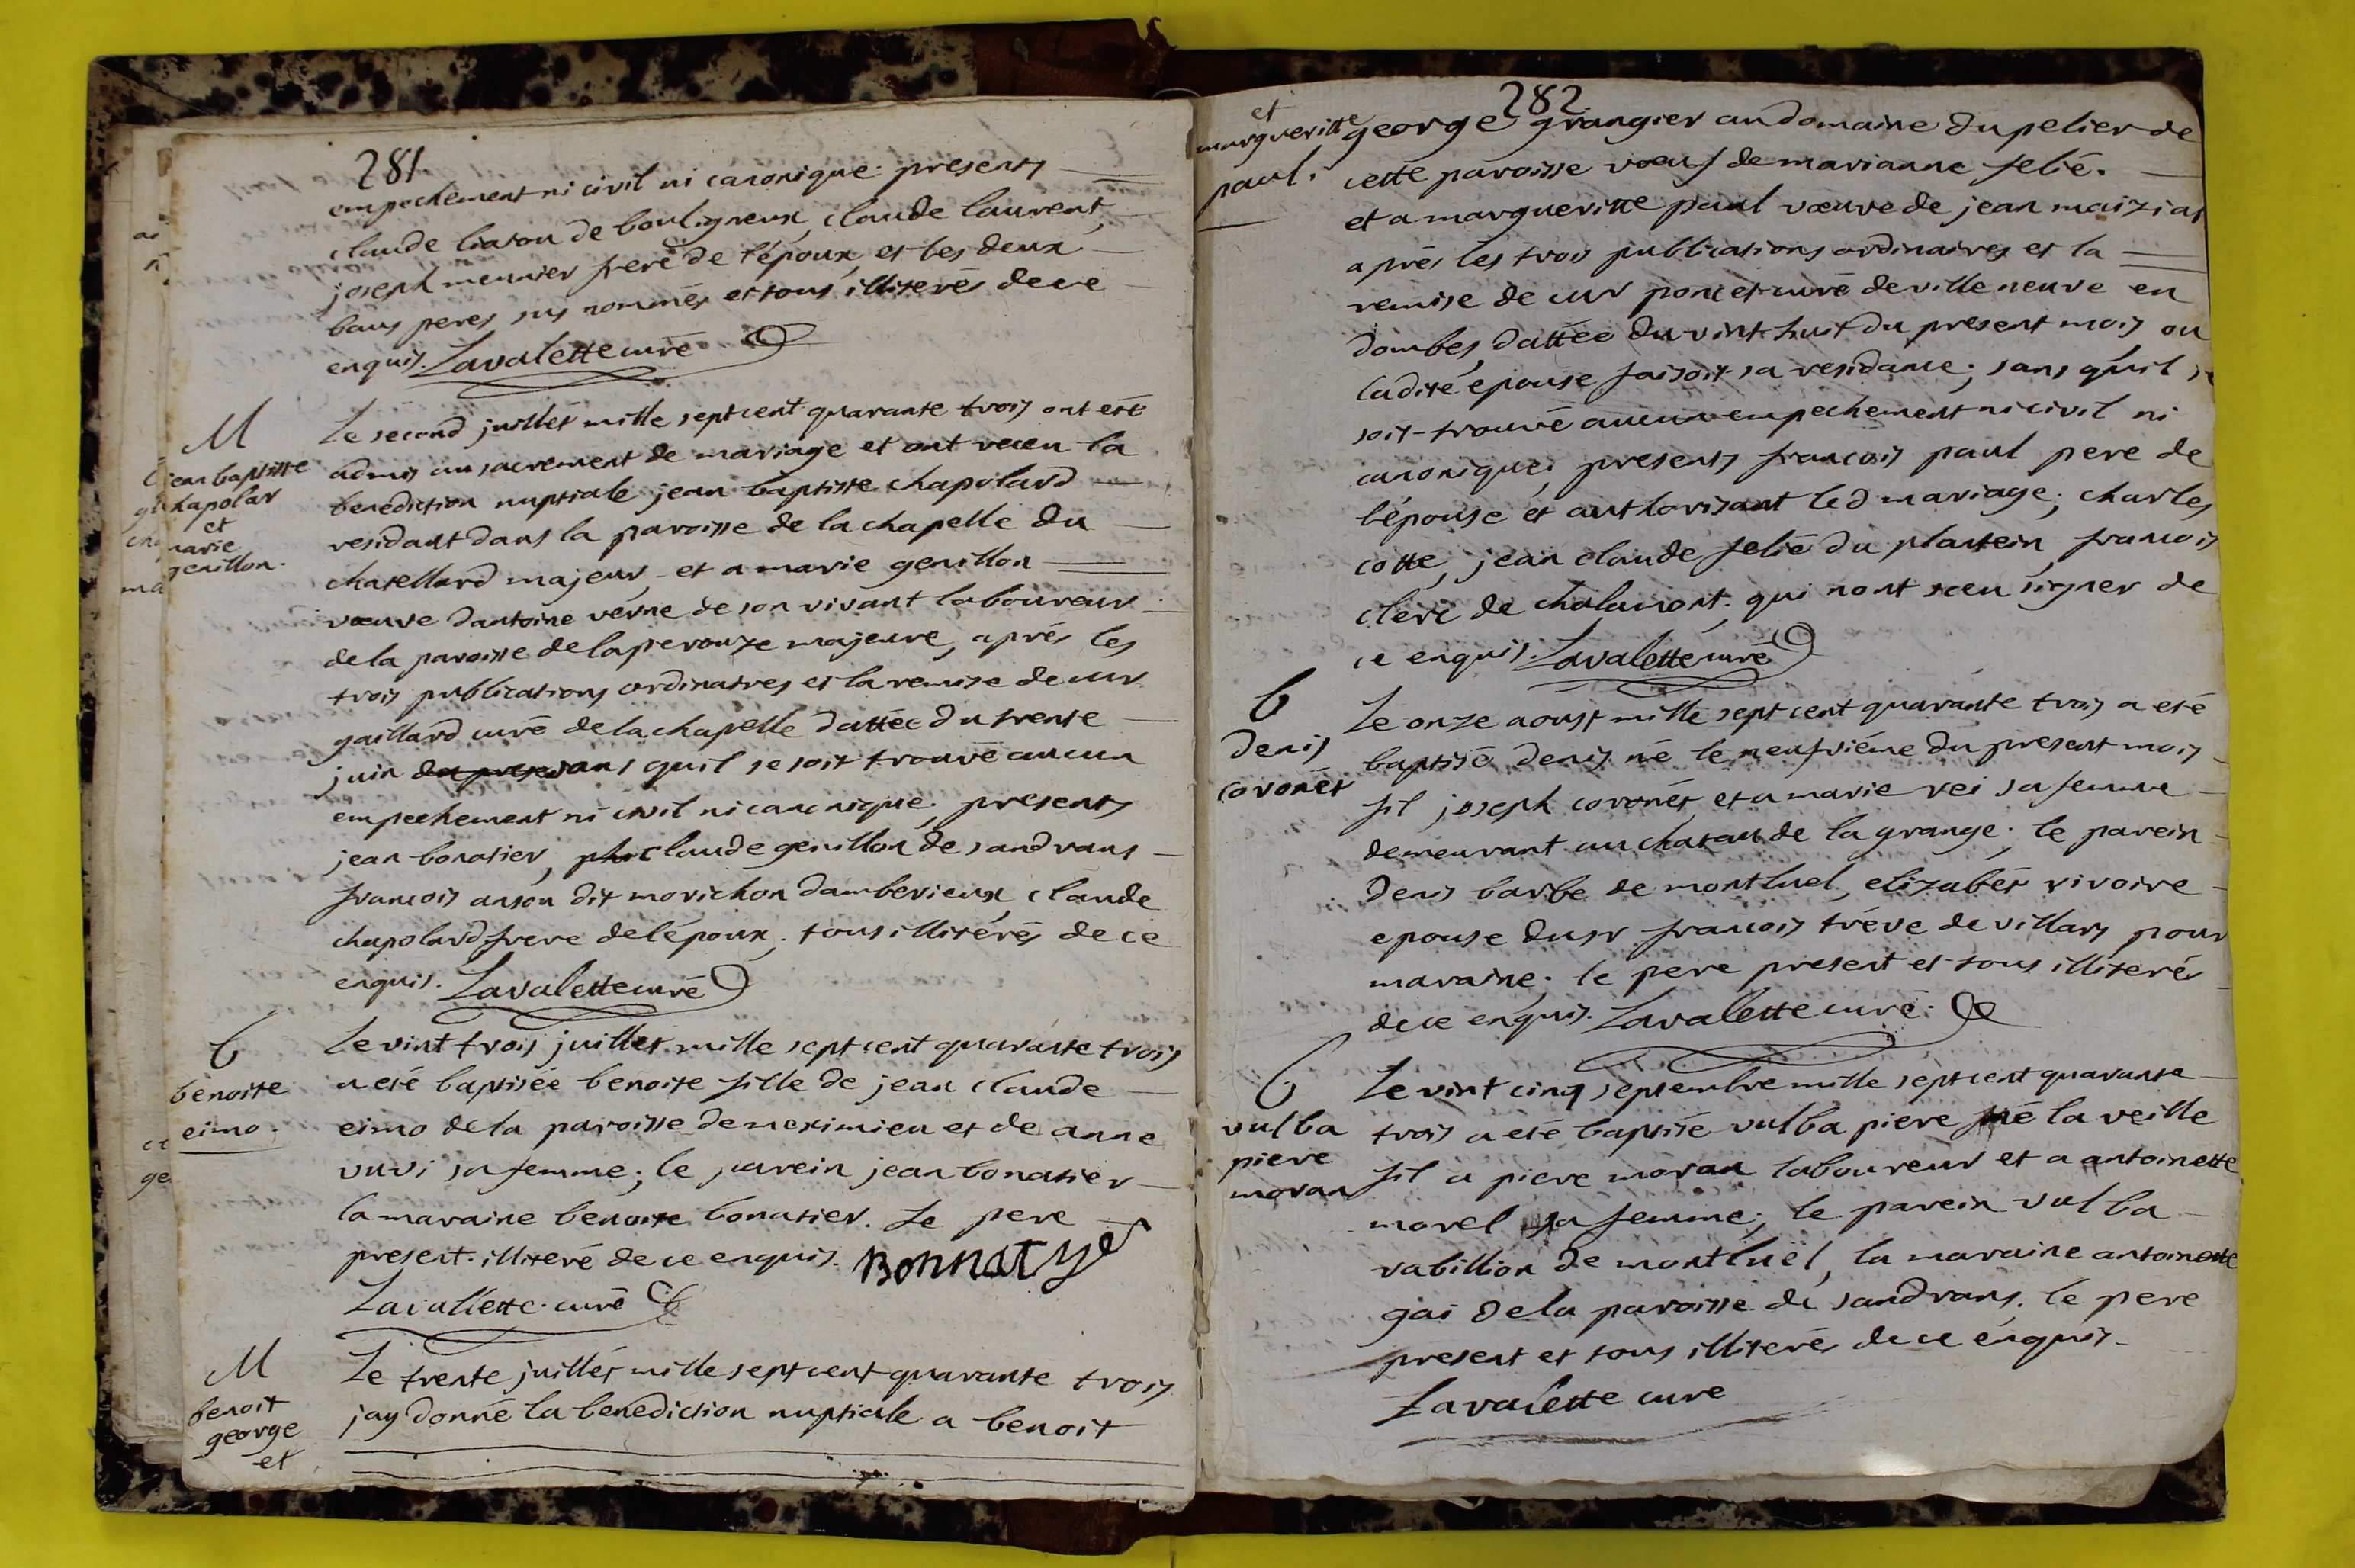 281
empechement ni civil ni canonique. presents
claude liaton de bouligneux, claude laurent,
joseph meunier frere de l'époux, et les deux
baus peres sus nommés et tous illiterés de ce
enquis. Lavalette curé
M
jean baptiste
chapolar
et
marie
genillon.
Le second juillet mille sept cent quarante trois ont eté
admis au sacrement de mariage et ont receu la
benediction nuptiale jean baptiste chapolard
residant dans la paroisse de la chapelle du
chatellard majeur, et a marie genillon
vœuve dantoine verne de son vivant laboureur
de la paroisse de laperouze majeure, aprés les
trois publications ordinaires et la remise de mr
gaillard curé de la chapelle dattée du trente
juin sans quil se soit trouvé aucun
empechement ni civil ni canonique. presents
jean bonatier, claude genillon de sandrans
francois anson dit morichon damberieux, claude
chapolard frere de lépoux, tous illitérés de ce
enquis. Lavalette curé
b
benoite
eimo.
Le vint trois juillet mille sept cent quarante trois
a eté baptisée benoite fille de jean claude
eimo de la paroisse de meximieu et de anne
vuvi sa femme; le parein jean bonatier
la maraine benoite bonatier. Le pere
present. illiteré de ce enquis. Bonnatye
Lavallette. curé
M
benoit
george
et
Le trente juillét mille sept cent quarante trois
jay donné la benediction nuptiale a benoit
282
et
margueritte
paul.
george grangier au domaine du pelier de
cette paroisse vœuf de marianne felié.
et a margueritte paul vœuve de jean maizias
aprés les trois publications ordinaires et la
remise de mr poncet curé de ville neuve en
dombes, dattée du vint huit du present mois, ou
ladite epouse faisoit sa residance; sans qu'il se
soit trouvé aucun empechement ni civil ni
canonique; presents francois paul pere de
l'épouse et authorisant led mariage; charles
cotte, jean claude felié du plantein, francois
clerc de chalamont. qui nont sceu signer de
ce enquis. Lavalette curé
b
denis
coronét
Le onze aoust mille sept cent quarante trois a eté
baptisé denis né le neufviéme du present mois
fil joseph coronét, et a marie rei sa femme
demeurant au chatau de la grange; le parein
denis barbe de montluel, elizabét rivoire
epouse du sr francois tréve de villars pour
maraine. le pere present et tous illiterés
de ce enquis. Lavalette curé.
b
vulba
piere
moran
Le vint cinq septembre mille sept cent quarante
trois a eté baptisé vulba piere né la veille
fil a piere moran laboureur et a antoinette
morel sa femme; le parein vulba
rabillion de montluel, la maraine antoinette
gai de la paroisse de sandrans. le pere
present et tous illiterés de ce enquis
Lavalette cure